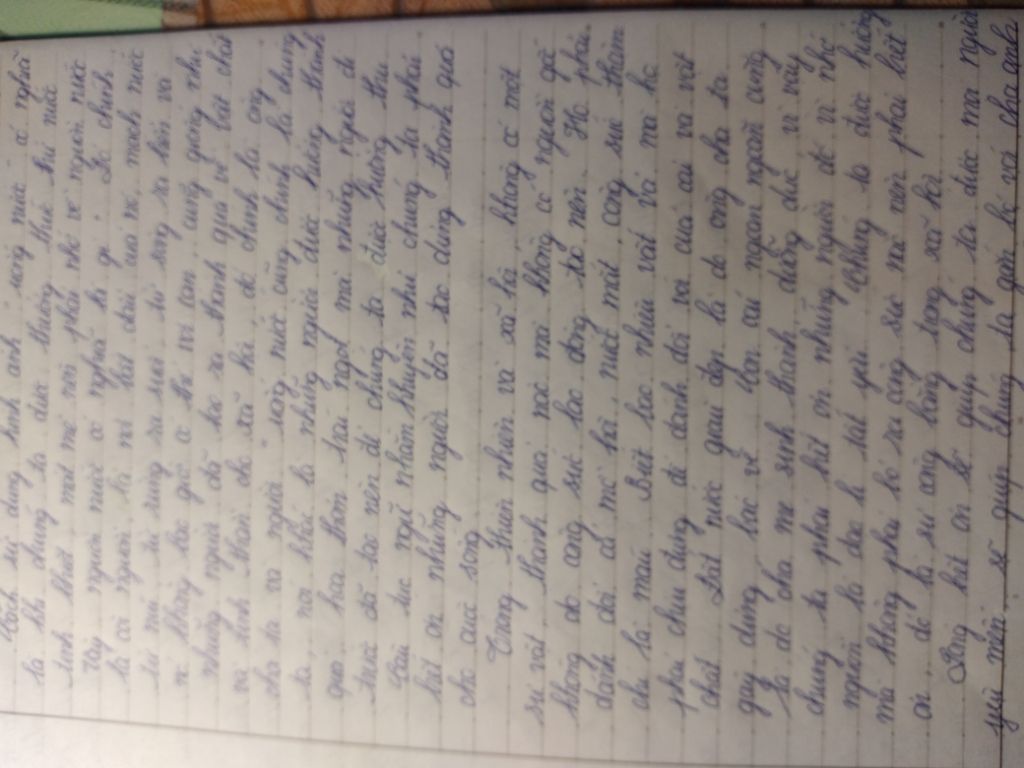 Cách sử dụng hình ảnh uống nước có nghĩa
là khi chúng ta được thưởng thức thứ nước
tinh khiết mát mẻ nơi phải nhớ về nguồn nước
này nguồn nước có nghĩa là gì. Đó chính
là cội nguồn là nơi bắt đầu của nó, mạch nước
từ núi từ rừng ra suối từ sông ra biển và
vì không bao giờ có thể vơi cạn, cũng giống như
những người đã tạo ra thành quả về vật chất
và tinh thần cho xã hội đó chính là ông
cha ta và người uống nước cũng chính là chúng
ta, nói khác là những người được hưởng thành
quả hoa thơm trái ngọt mà những người đi
trước đã tạo nên để chúng ta được hưởng thụ
Câu tục ngữ nhằm khuyên nhủ chúng ta phải
biết ơn những người đã tạo dựng thành quả
cho cuộc sống
Trong thiên nhiên và xã hội, không có một
sự vật thành quả nào mà không có nguồn gốc
không do công sức lao động tạo nên. Họ phải
đánh đổi cả mồ hôi, nước mắt công sức thậm
chí là máu. Biết bao nhiêu vất vả mà họ
phải chịu đựng để đánh đổi với của cải và vật
chất Đất nước giàu đẹp là do ông cha ta
gây dựng bao về Con cái ngoan ngoãn cũng
là do cha mẹ sinh thành dưỡng dục vì vậy
chúng ta phải biết ơn những người đó vì nhớ
nguồn là đạo lí tất yếu Chúng ta được hưởng
mà không phải bỏ ra công sức nào nên phải biết
ơn đó là sự công bằng trong xã hội
Lòng biết ơn sẽ giúp chúng ta được mọi người
yêu mến sẽ giúp chúng ta gắn bó với cha anh